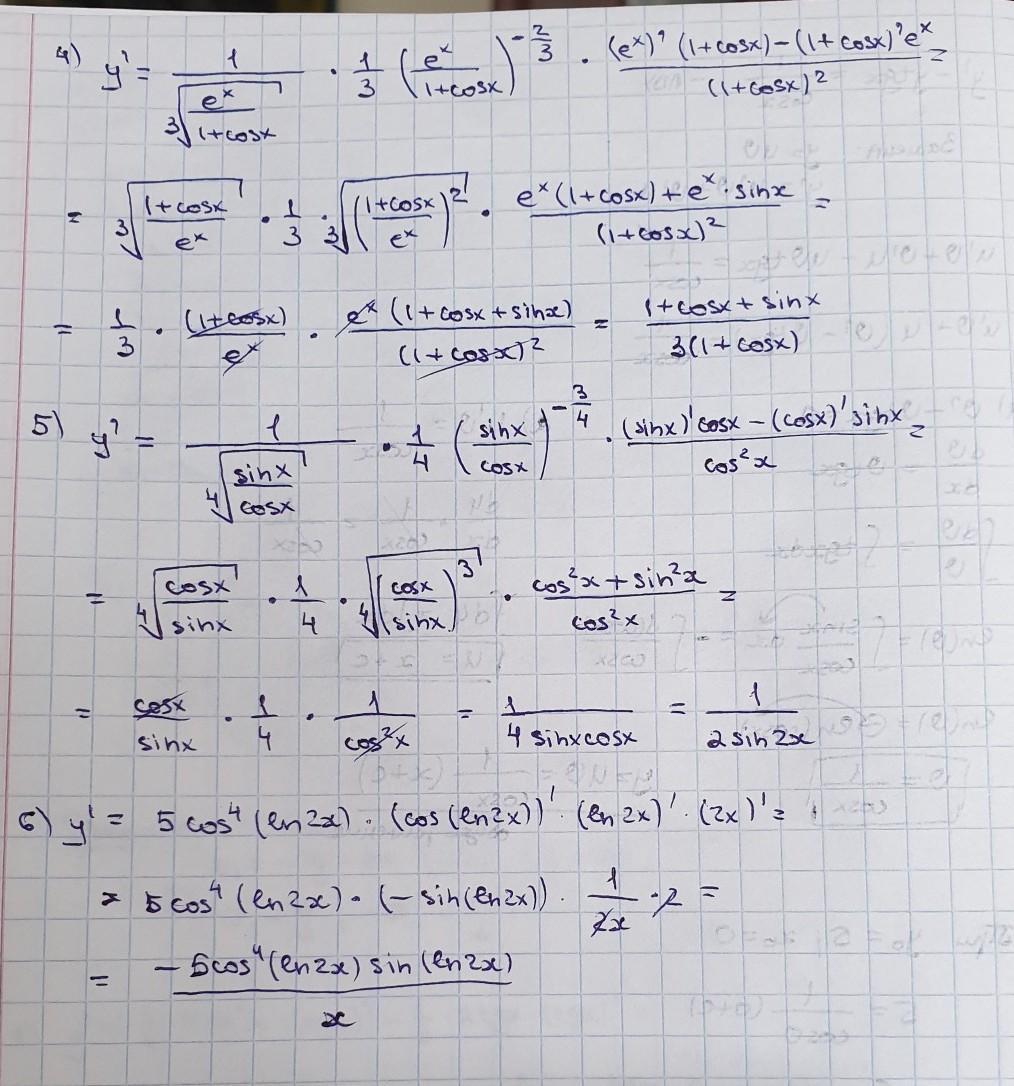 4) y' = 1/∛(eˣ/(1+cosx)) · 1/3 (eˣ/(1+cosx))^(-2/3) · ((eˣ)' (1+cosx) - (1+cosx)' eˣ)/(1+cosx)² =
= ∛((1+cosx)/eˣ) · 1/3 · ∛(((1+cosx)/eˣ)²) · (eˣ (1+cosx) + eˣ · sinx)/(1+cosx)² =
= 1/3 · (1+cosx)/eˣ · eˣ (1+cosx+sinx)/(1+cosx)² = (1+cosx+sinx)/3(1+cosx)
5) y' = 1/∜(sinx/cosx) · 1/4 (sinx/cosx)^(-3/4) · ((sinx)' cosx - (cosx)' sinx)/cos²x =
= ∜(cosx/sinx) · 1/4 · ∜((cosx/sinx)³) · (cos²x + sin²x)/cos²x =
= cosx/sinx · 1/4 · 1/cos²x = 1/4 sinxcosx = 1/2 sin2x
6) y' = 5cos⁴(ln2x) · (cos(ln2x))' · (ln2x)' · (2x)' =
= 5cos⁴(ln2x) · (-sin(ln2x)) · 1/2x · 2 =
= -5cos⁴(ln2x) sin(ln2x)/x